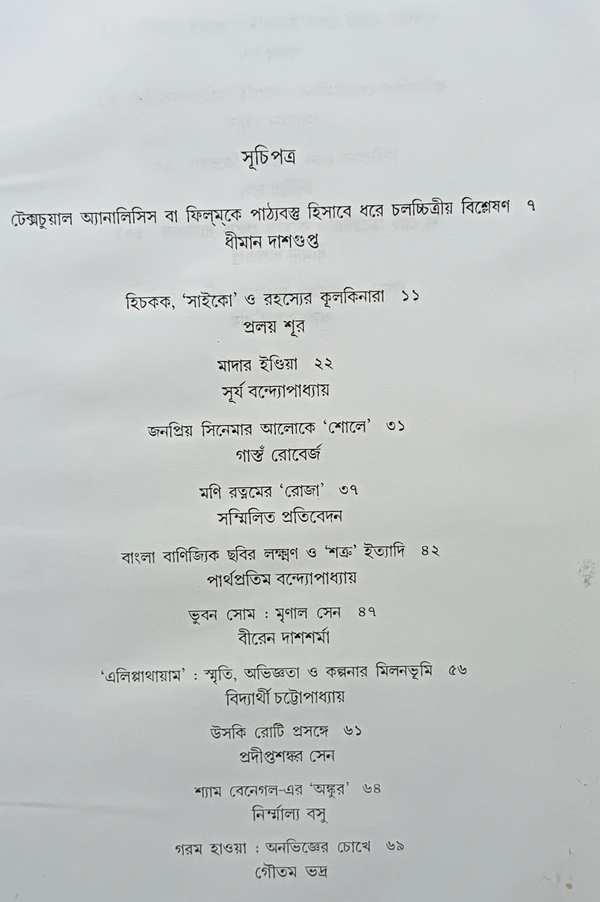 সূচিপত্র
টেক্সচুয়াল অ্যানালিসিস বা ফিল্ম্‌কে পাঠ্যবস্তু হিসাবে ধরে চলচ্চিত্রীয় বিশ্লেষণ ৭
ধীমান দাশগুপ্ত
হিচকক, ‘সাইকো’ ও রহস্যের কূলকিনারা ১১
প্রলয় শূর
মাদার ইণ্ডিয়া ২২
সূর্য বন্দ্যোপাধ্যায়
জনপ্রিয় সিনেমার আলোকে ‘শোলে’ ৩১
গাস্তঁ রোবের্জ
মণি রত্নমের ‘রোজা’ ৩৭
সম্মিলিত প্রতিবেদন
বাংলা বাণিজ্যিক ছবির লক্ষ্মণ ও ‘শত্রু’ ইত্যাদি ৪২
পার্থপ্রতিম বন্দ্যোপাধ্যায়
ভুবন সোম : মৃণাল সেন ৪৭
বীরেন দাশশর্মা
‘এলিপ্পাথায়াম’ : স্মৃতি, অভিজ্ঞতা ও কল্পনার মিলনভূমি ৫৬
বিদ্যার্থী চট্টোপাধ্যায়
উসকি রোটি প্রসঙ্গে ৬১
প্রদীপ্তশঙ্কর সেন
শ্যাম বেনেগল-এর ‘অঙ্কুর’ ৬৪
নির্ম্মাল্য বসু
গরম হাওয়া : অনভিজ্ঞের চোখে ৬৯
গৌতম ভদ্র